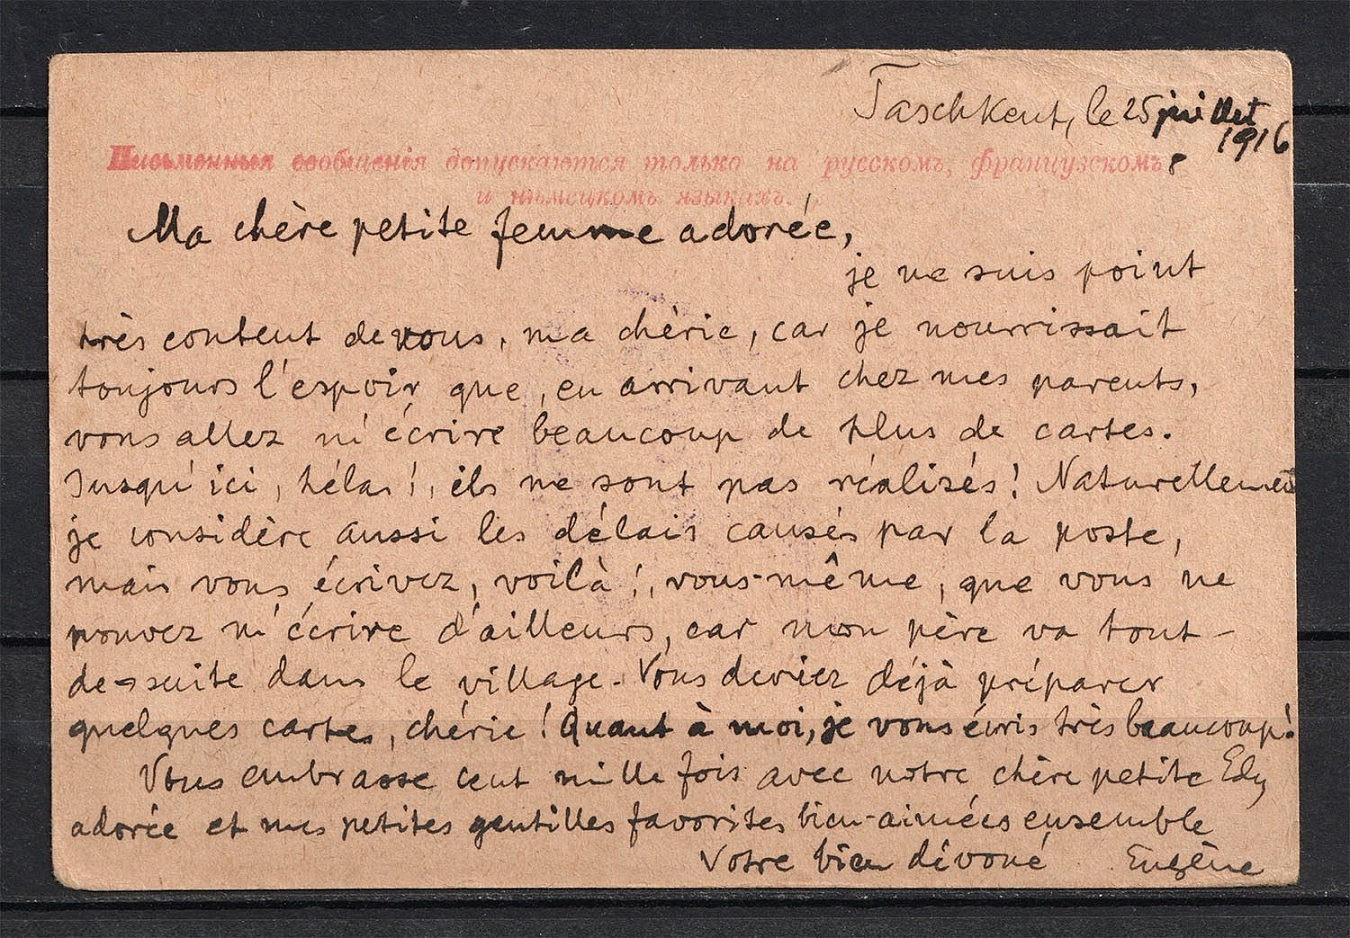 Taschkent, le 25 juillet
1916
Письменныя сообщенія допускаются только на русскомъ, французскомъ
и нѣмецкомъ языкахъ.
Ma chère petite femme adorée,
je ne suis point
très content de vous, ma chérie, car je nourrissait
toujours l'espoir que, en arrivant chez mes parents,
vous allez m'écrire beaucoup de plus de cartes.
Jusqu'ici, hélas!, ils ne sont pas réalisés! Naturellement
je considère aussi les délais causés par la poste,
mais vous écrivez, voilà!, vous-même, que vous ne
pouvez m'écrire d'ailleurs, car mon père va tout-
de-suite dans le village. Vous devriez déjà préparer
quelques cartes, chérie! Quant à moi, je vous écris très beaucoup!
Vous embrasse cent mille fois avec notre chère petite Edy
adorée et mes petites gentilles favorites bien-aimées ensemble
Votre bien dévoué Eugène